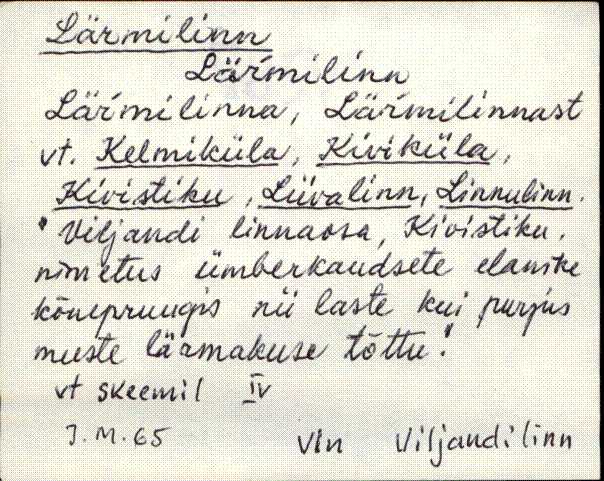 Lärmilinn
Lär'milinn
Lär'milinna, Lär'milinnast
vt. Kelmiküla, Kiviküla,
Kivistiku, Liivalinn, Linnulinn.
"Viljandi linnaosa, Kivistiku,
nimetus ümberkaudsete elanike
kõnepruugis nii laste kui purjus
meeste lärmakuse tõttu."
vt skeemil IV
J.M. 65 Vln Viljandi linn